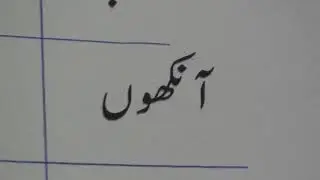 آنکھوں